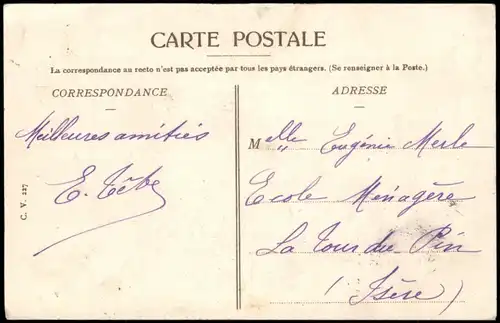 CARTE POSTALE
La correspondance au recto n'est pas acceptée par tous les pays étrangers. (Se renseigner à la Poste.)
CORRESPONDANCE
ADRESSE
Meilleures amitiés
E.
C. V. 227
Melle Eugénie Merle
Ecole Ménagère
La Tour du Pin
(Isère)